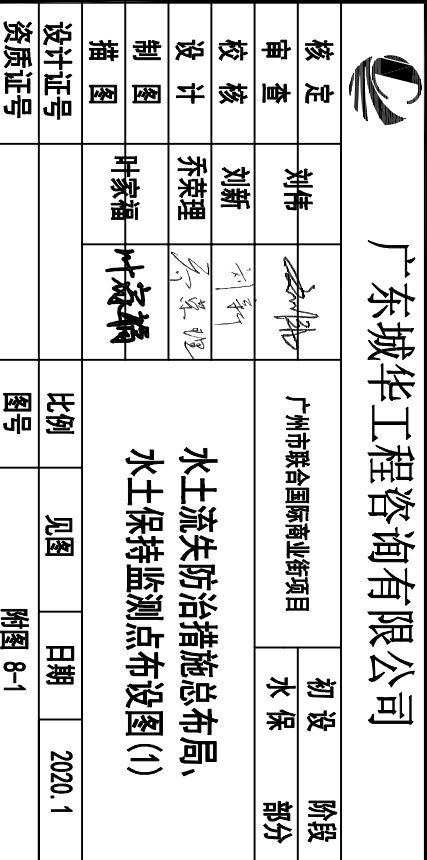 广东城华工程咨询有限公司
核 定
审 查 刘伟 刘伟
校 核 刘新 刘新
设 计 乔荣理 乔荣理
制 图
描 图 叶家福 叶家福
广州市联合国际商业街项目
初 设 阶段
水 保 部分
水土流失防治措施总布局、
水土保持监测点布设图(1)
设计证号 比例 见图 日期 2020.1
资质证号 图号 附图 8-1